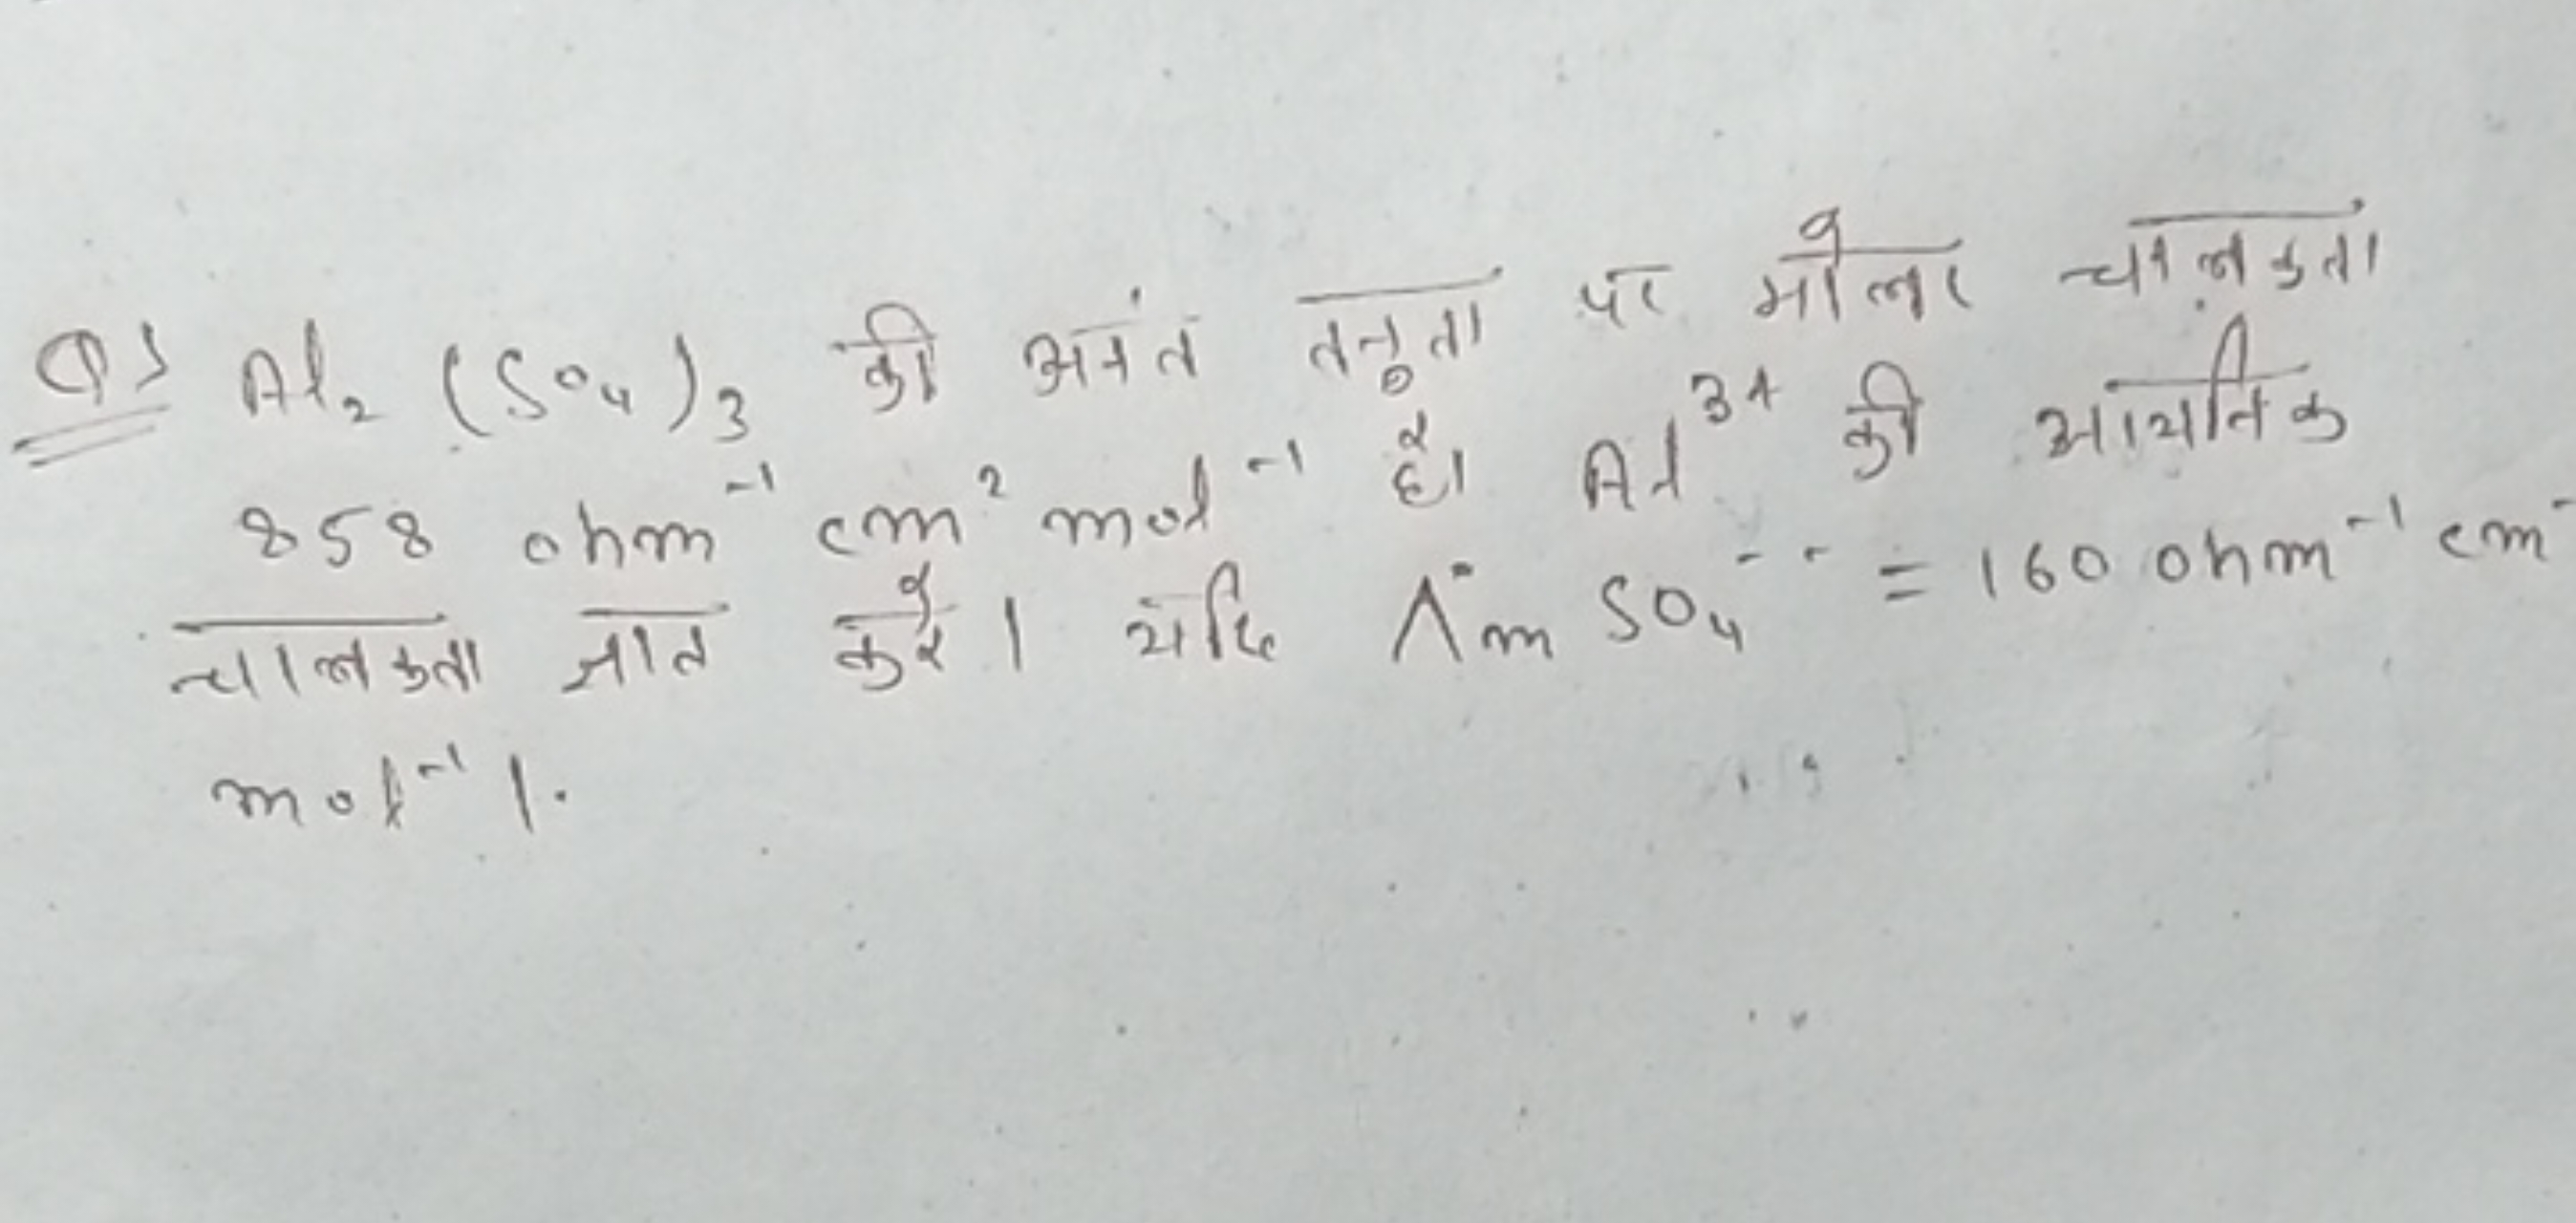 Q1 Al₂(SO₄)₃ की अनंत तनुता पर मोलर चालकता
858 ohm⁻¹ cm² mol⁻¹ है। Al³⁺ की आयनिक
चालकता ज्ञात करें। यदि Λ°m SO₄⁻⁻ = 160 ohm⁻¹ cm
mol⁻¹ ।